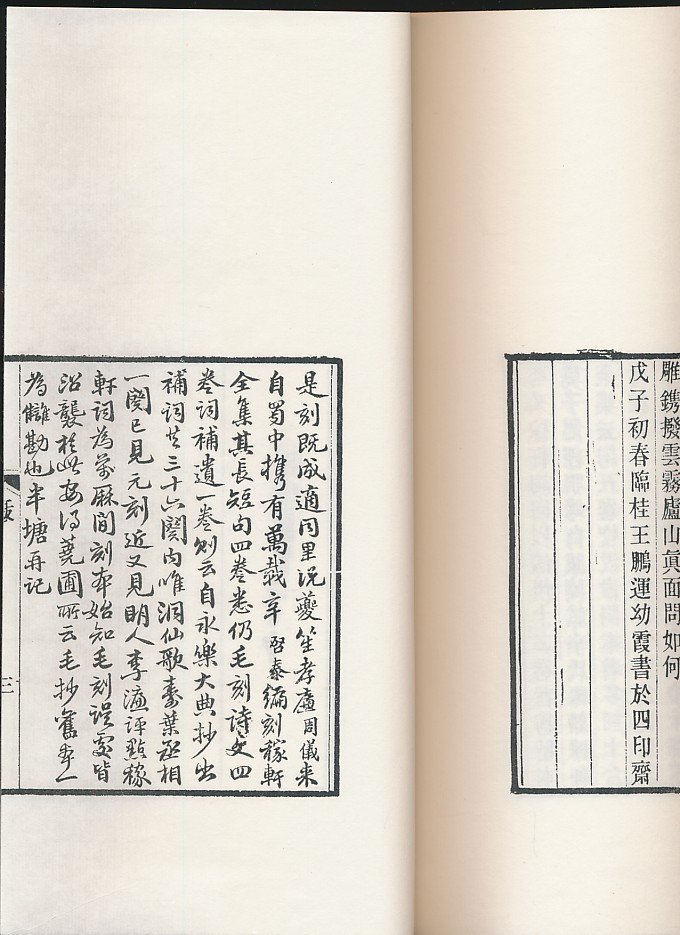 雕鐫撥雲霧廬山眞面問如何
戊子初春臨桂王鵬運幼霞書於四印齋
是刻既成適同里況夔笙孝廉周儀來
自蜀中攜有萬載辛啟泰編刻稼軒
全集其長短句四卷悉仍毛刻詩文四
卷詞補遺一卷則云自永樂大典抄出
補詞共三十六闋內唯洞仙歌壽葉丞相
一闋已見元刻近又見明人李濂評點稼
軒詞為萬厤間刻本始知毛刻誤處皆
沿襲於此安得蕘圃所云毛抄舊本一
為讎勘也半塘再記
三